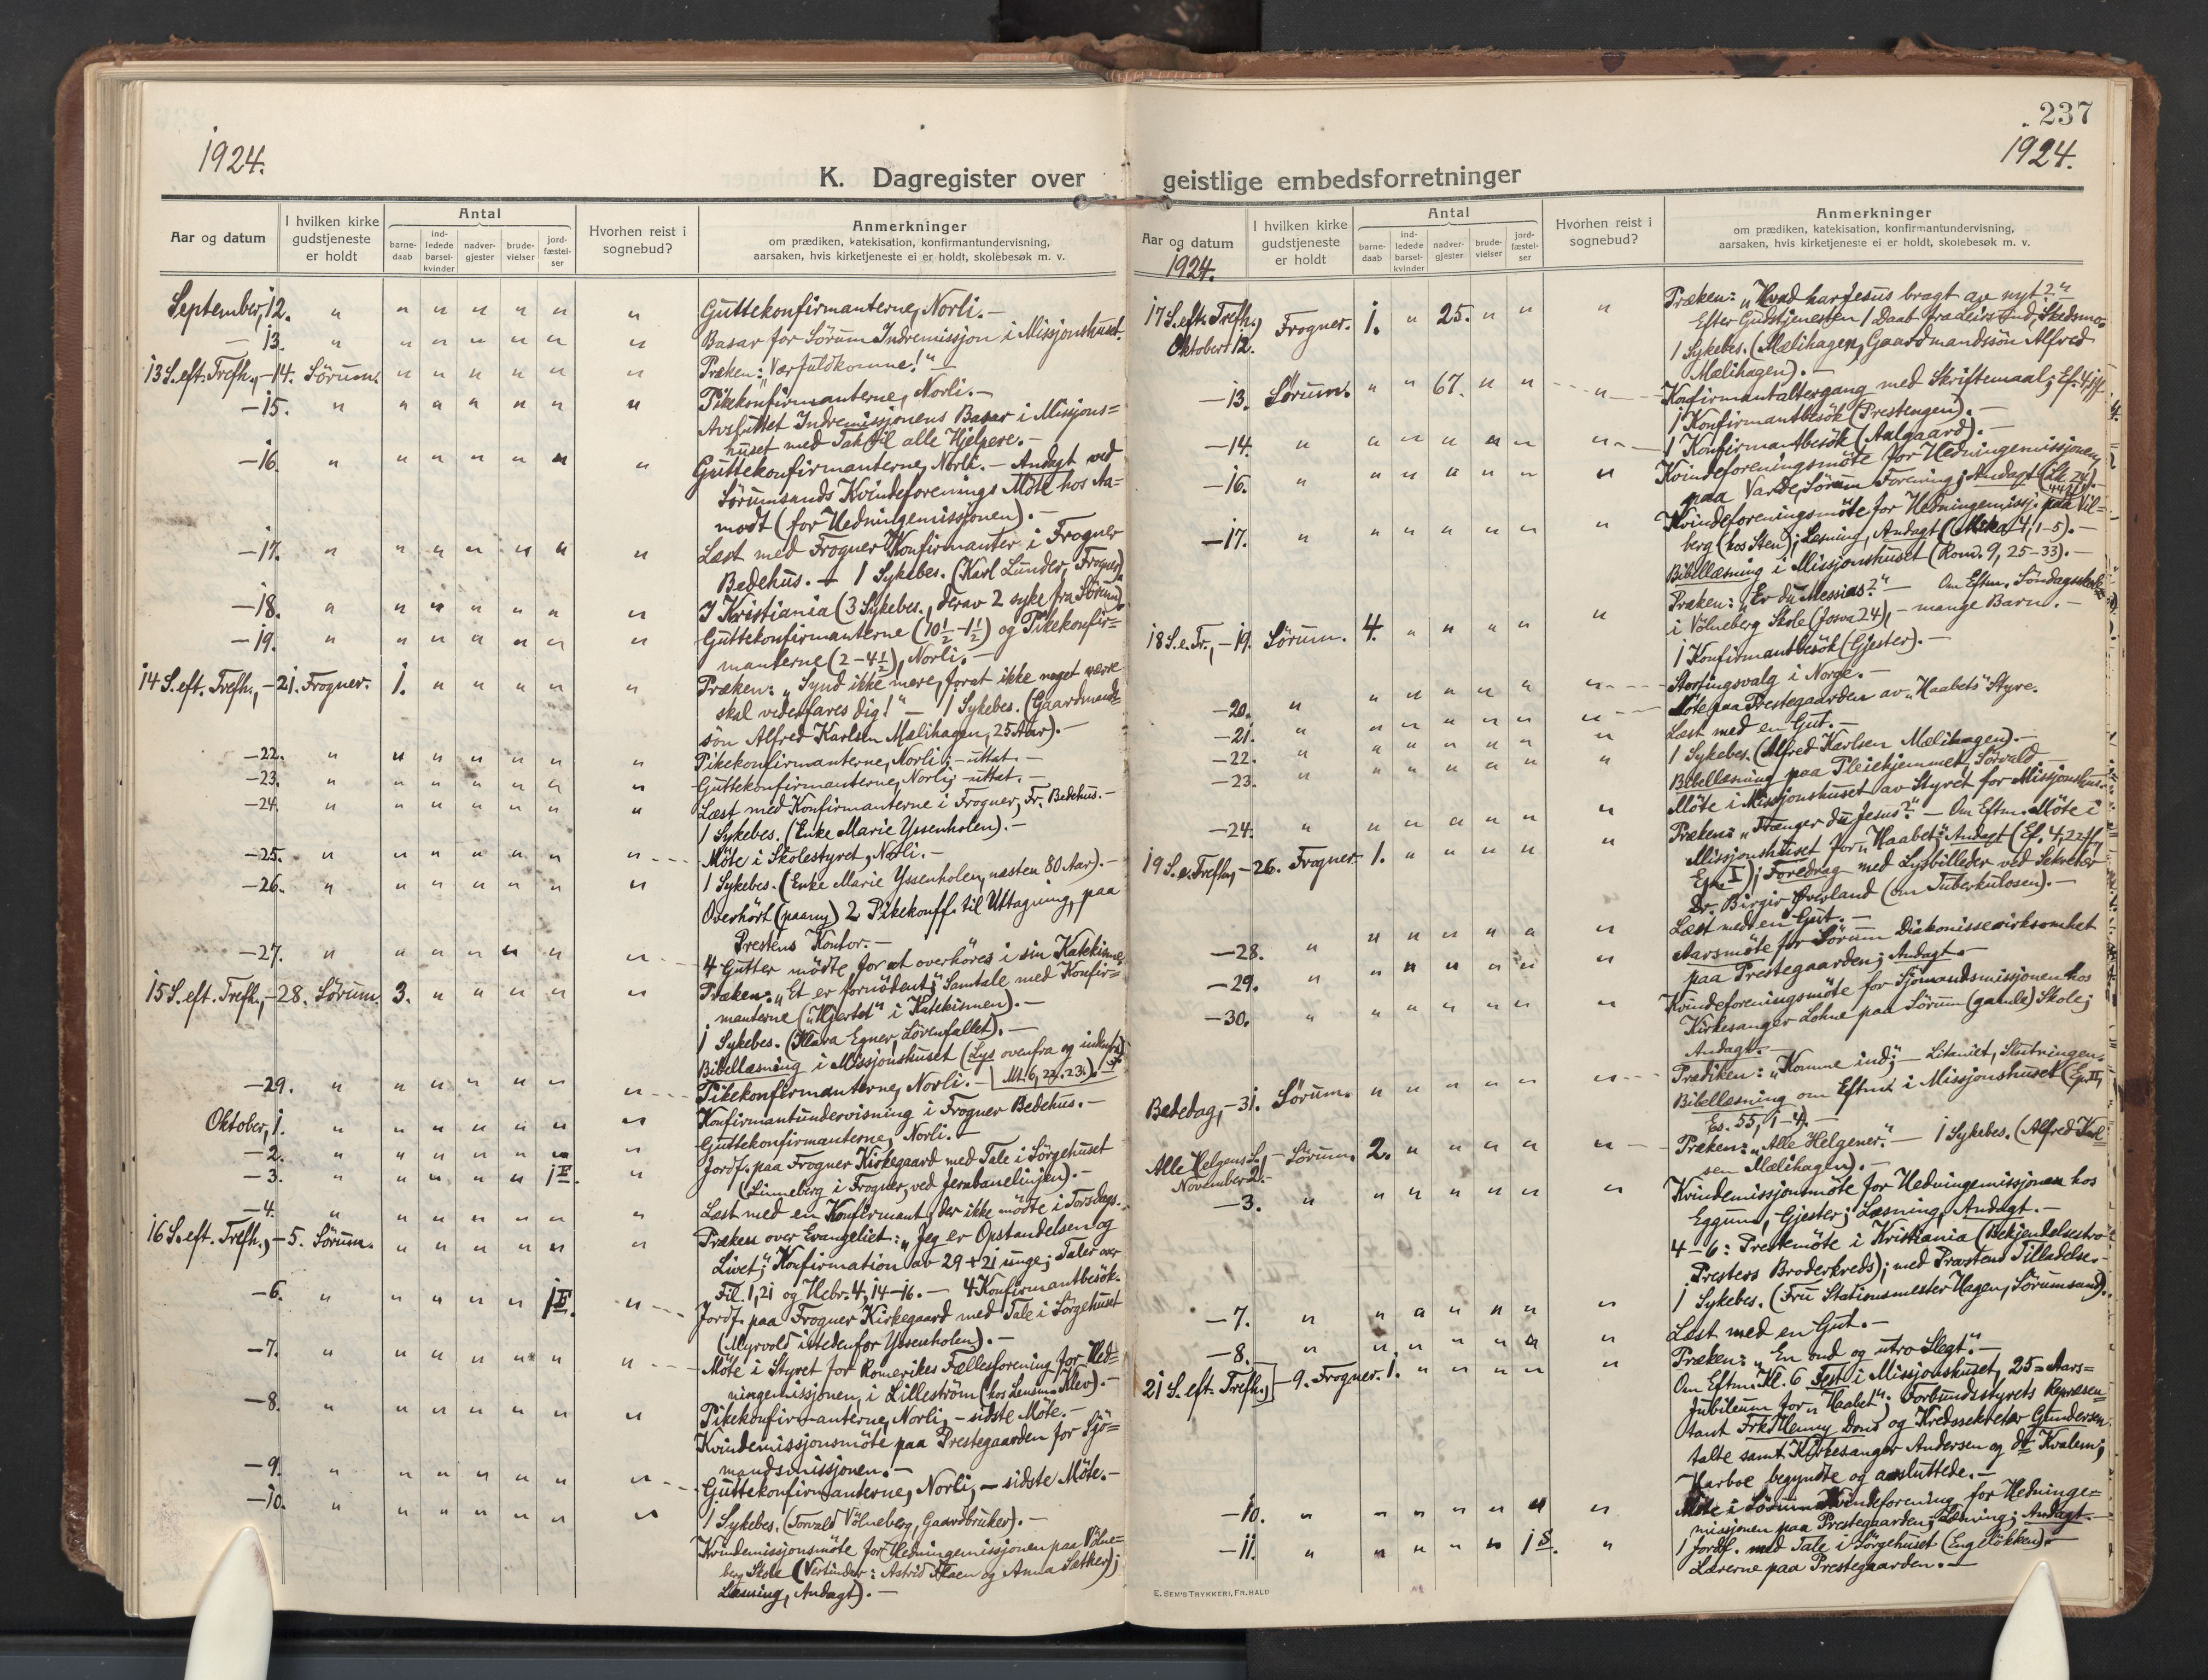 1924.
K. Dagregister over
Aar og datum
I hvilken kirke gudstjeneste er holdt
Antal
barne-daab
ind-ledede barsel-kvinder
nadver-gjester
brude-vielser
jord-fæstel-ser
Hvorhen reist i sognebud?
Anmerkninger
om prædiken, katekisation, konfirmantundervisning,
aarsaken, hvis kirketjeneste ei er holdt, skolebesøk m. v.
September, 12. " " " " " " " Guttekonfirmanterne, Norli. —
— 13. " " " " " " " Basar for Sörum Indremissjon i Missjonshuset.
13 S. eft. Trefh., — 14. Sörum. " " " " " " Præken: "Vær fuldkomne!" —
— 15. " " " " " " " Pikekonfirmanterne, Norli. —
Avsluttet Indremissjonens Basar i Missjons=
huset med Tak til alle Hjelpere. —
— 16. " " " " " " " Guttekonfirmanterne, Norli. — Andagt ved
Sörumsands Kvindeforenings Möte hos Aa=
modt (for Hedningemissjonen). —
— 17. " " " " " " " Læst med Frogner Konfirmanter i Frogner
Bedehus. — 1 Sykebes. (Karl Lunder, Frogner)
— 18. " " " " " " " I Kristiania (3 Sykebes., derav 2 syke fra Sörum).
— 19. " " " " " " " Guttekonfirmanterne (10½ — 1½) og Pikekonfir=
manterne (2 — 4½), Norli. —
14 S. eft. Trefh., — 21. Frogner. 1. " " " " " Præken: "Synd ikke mere, forat ikke noget værre
skal vederfares dig!" — 1 Sykebes. (Gaardmands=
sön Alfred Karlsen Mælihagen, 25 Aar). —
— 22. " " " " " " " Pikekonfirmanterne, Norli; — uttat. —
— 23. " " " " " " " Guttekonfirmanterne, Norli; — uttat. —
— 24. " " " " " " " Læst med Konfirmanterne i Frogner, Fr. Bedehus. —
1 Sykebes. (Enke Marie Yssenholen). —
— 25. " " " " " " " Möte i Skolestyret, Norli. —
— 26. " " " " " " " 1 Sykebes. (Enke Marie Yssenholen, næsten 80 Aar). —
Overhört (paany) 2 Pikekonff. til Uttagning, paa
Prestens Kontor. —
— 27. " " " " " " " 4 Gutter mödte for at overhöres i sin Katekisme.
15 S. eft. Trefh., — 28. Sörum. 3. " " " " " Præken: "Et er fornödent"; Samtale med Konfir=
manterne ("Hjertet" i Katekismen). —
1 Sykebes. (Klara Egner, Sörenfallet). —
Bibellæsning i Missjonshuset (Lys ovenfra og indenfra)
— 29. " " " " " " " Pikekonfirmanterne, Norli. — Mt. 6, 22. 23.)
Oktober, 1. " " " " " " " Konfirmantundervisning i Frogner Bedehus. —
— 2. " " " " " " " Guttekonfirmanterne, Norli. —
— 3. " " " " " 1 F. " Jordf. paa Frogner Kirkegaard med Tale i Sörgehuset
(Linneberg i Frogner, ved Jernbanelinjen). —
— 4. " " " " " " " Læst med en Konfirmant, der ikke mödte i Torsdags.
16 S. eft. Trefh., — 5. Sörum. " " " " " " Præken over Evangeliet: "Jeg er Opstandelsen og
Livet"; Konfirmation av 29 + 21 unge; Taler over
Fil. 1,21 og Hebr. 4, 14—16. — 4 Konfirmantbesök.
— 6. " " " " " 1 F. " Jordf. paa Frogner Kirkegaard med Tale i Sörgehuset
(Myrvold istedenfor Yssenholen). —
— 7. " " " " " " " Möte i Styret for Romerikes Fællesforening for Hed=
ningemissjonen, i Lilleström (hos Lensm. Alev). —
— 8. " " " " " " " Pikekonfirmanterne, Norli, — sidste Möte. —
Kvindemissjonsmöte paa Prestegaarden for Sjö=
mandsmissjonen. —
— 9. " " " " " " " Guttekonfirmanterne, Norli, — sidste Möte. —
— 10. " " " " " " " 1 Sykebes. (Torvald Völneberg, Gaardbruker). —
Kvindemissjonsmöte for Hedningemissjonen paa Völne=
berg Skole (Vertinder: Astrid Flaen og Anna Sæther);
Læsning, Andagt). —
237
1924.
geistlige embedsforretninger
Aar og datum
1924.
I hvilken kirke gudstjeneste er holdt
Antal
barne-daab
ind-ledede barsel-kvinder
nadver-gjester
brude-vielser
jord-fæstel-ser
Hvorhen reist i sognebud?
Anmerkninger
om prædiken, katekisation, konfirmantundervisning,
aarsaken, hvis kirketjeneste ei er holdt, skolebesøk m. v.
17 S. eft. Trefh., Oktober 12. Frogner. 1. " 25. " " " Præken: "Hvad har Jesus bragt av nyt?"
Efter Gudstjenesten 1 Daab fra Skedsmo.
1 Sykebes. (Mælihagen, Gaardmandssön Alfred
Mælihagen). —
— 13. Sörum. " " 67. " " " Konfirmantaltergang med Skriftemaal; Ef.
1 Konfirmantbesök (Prestengen). —
— 14. " " " " " " " 1 Konfirmantbesök (Aalgaard). —
— 16. " " " " " " " Kvindeforeningsmöte for Hedningemissjonen
paa Varde, Sörum Forening; Andagt (Lk. 24,
44 ff). —
— 17. " " " " " " " Kvindeforeningsmöte for Hedningemissj. paa Vil=
berg (hos Sten); Læsning, Andagt (Mika 4, 1—5). —
Bibellæsning i Missjonshuset (Rom. 9, 25—33). —
18 S. e. Tr., — 19. Sörum. 4. " " " " " Præken: "Er du Messias?" — Om Eftm. Söndagsskole
i Völneberg Skole (Josva 24), — mange Barn. —
1 Konfirmantbesök (Gjester). —
— 20. " " " " " " " Stortingsvalg i Norge. —
— 21. " " " " " " " Möte paa Prestegaarden av "Haabets" Styre.
— 22. " " " " " " " Læst med en Gut. —
— 23. " " " " " " " 1 Sykebes. (Alfred Karlsen Mælihagen). —
Bibellæsning paa Pleiehjemmet, Sörvald. —
— 24. " " " " " " " Möte i Missjonshuset av Styret for Missjonshus.
19 S. e. Trefh., — 26. Frogner. 1. " " " " " Præken: "Trænger du Jesus?" — Om Eftm. Möte i
Missjonshuset for "Haabet"; Andagt (Ef. 4, 22 ff,
Ep. I); Foredrag med Lysbilleder ved Sekretær
Dr. Birgir Øverland (om Tuberkulosen). —
— 28. " " " " " " " Læst med en Gut. —
— 29. " " " " " " " Aarsmöte for Sörum Diakonissevirksomhet
paa Prestegaarden; Andagt. —
— 30. " " " " " " " Kvindeforeningsmöte for Sjömandsmissjonen hos
Kirkesanger Lohne paa Sörum (gamle) Skole;
Andagt. —
Bededag, — 31. Sörum. " " " " " " Prædiken: "Komme ind"; — Litaniet, Slutningen.
Bibellæsning om Eftm. i Missjonshuset (Ep. II,
Es. 55, 1—4). —
Alle Helgens S., November 2. — Sörum. 2. " " " " " Præken: "Alle Helgener". — 1 Sykebes. (Alfred Karl=
sen Mælihagen). —
— 3. " " " " " " " Kvindemissjonsmöte for Hedningemissjonen hos
Eggum, Gjester; Læsning, Andagt. —
4—6: Prestemöte i Kristiania (Bekjendelsestro
Presters Broderkreds); med Prostens Tilladelse.
— 7. " " " " " " " 1 Sykebes. (Fru Stationsmester Hagen, Sörumsand).
— 8. " " " " " " " Læst med en Gut. —
21 S. eft. Trefh., — 9. Frogner. 1. " " " " " Præken: "En ond og utro Slegt". —
Om Eftm. Kl. 6 Fest i Missjonshuset, 25=Aars=
Jubileum for "Haabet"; Forbundsstyrets Repræsen=
tant Frk. Henny Dons og Kredssekretær Gundersen
talte samt Kirkesanger Andersen og dr Kvalem;
Harboe begyndte og avsluttede. —
— 10. " " " " " " " Möte i Sörum Kvindeforening for Hedninge=
missjonen paa Prestegaarden; Læsning; Andagt. —
— 11. " " " " " 1 S. " 1 Jordf. med Tale i Sörgehuset (Englökken). —
Lærerne paa Prestegaarden. —
E. SEM'S TRYKKERI, FR.HALD